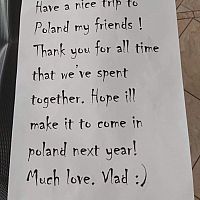 Have a nice trip to
Poland my friends !
Thank you for all time
that we've spent
together. Hope ill
make it to come in
poland next year!
Much love. Vlad :)